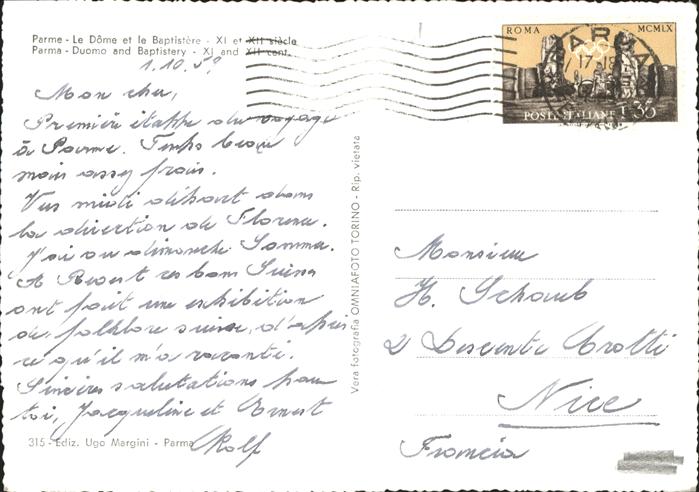 Parme - Le Dôme et le Baptistère - XI et XII siècle
Parma - Duomo and Baptistery - XI and XII cent.
1.10.59
Mon cher,
Première étappe du voyage
à Parme. Temps beau
mais assez frais.
Vers midi départ dans
la direction de Florence.
J'ai vu dimanche Somma.
A Brest ces bons Suisses
ont fait une exhibition
de folklore suisse, d'après
ce qu'il m'a raconté.
Sincères salutations pour
toi, Jacqueline et Ernest
Rolf
315 - Ediz. Ugo Margini - Parma
Vera fotografia OMNIAFOTO TORINO - Rip. vietata
ROMA MCMLX
POSTE ITALIANE L. 35
PARMA
17-18
Monsieur
H. Schaub
2 Descente Crotti
Nice
Francia